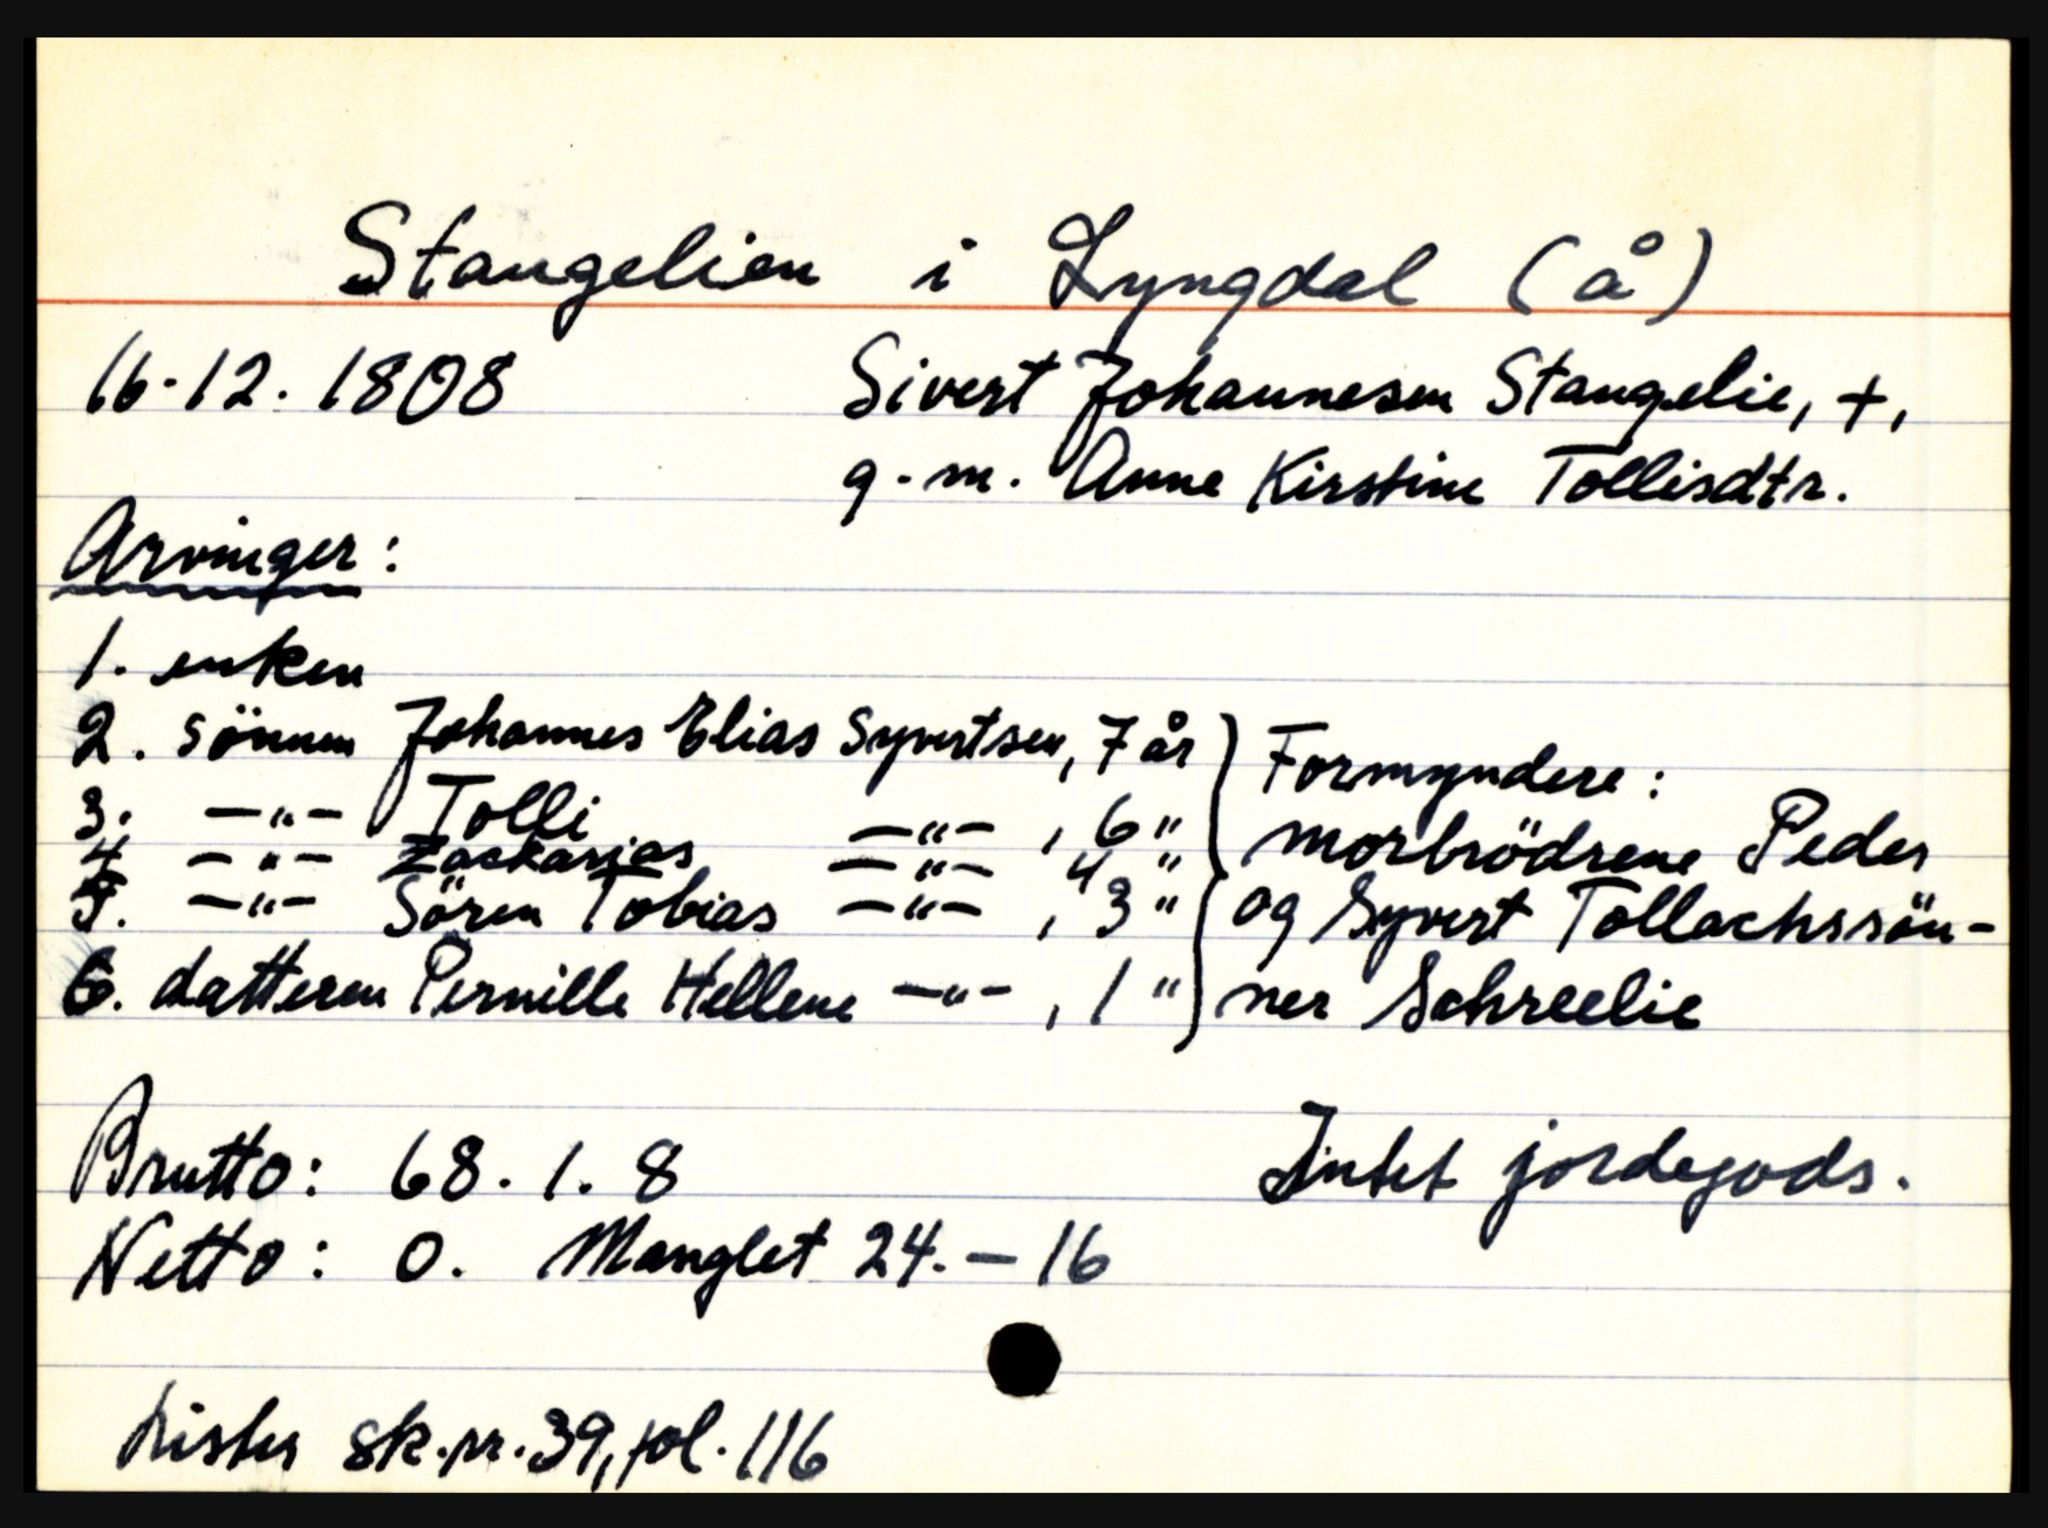 Stangelien i Lyngdal (å)
16.12.1808 Sivert Johannesen Stangelie, +,
g.m. Anne Kirstine Tollisdtr.
Arvinger:
1. enken
2. sönnen Johannes Elias Syvertsen, 7 år
3. —"— Tolli —"—, 6 "
4 —"— Zackarias —"— 4 "
5. —"— Sören Tobias —"—, 3 "
6. datteren Pernille Hellene —"—, 1 "
Formyndere:
morbrödrene Peder
og Syvert Tollachssön-
ner Schreelie
Brutto: 68.1.8 Intet jordegods.
Netto: 0. Manglet 24.—16
Lister sk.pr.39, fol.116